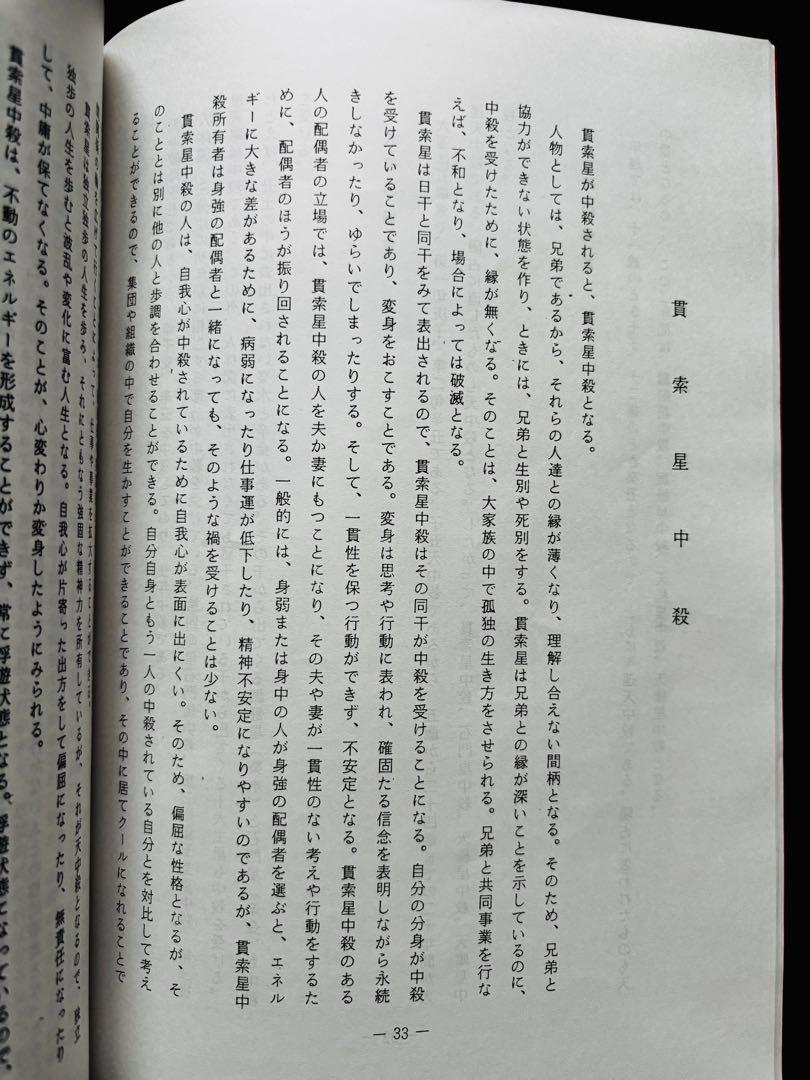 貫索星中殺
貫索星が中殺されると、貫索星中殺となる。
人物としては、兄弟であるから、それらの人達との縁が薄くなり、理解し合えない間柄となる。そのため、兄弟と
協力ができない状態を作り、ときには、兄弟と生別や死別をする。貫索星は兄弟との縁が深いことを示しているのに、
中殺を受けたために、縁が無くなる。そのことは、大家族の中で孤独の生き方をさせられる。兄弟と共同事業を行な
えば、不和となり、場合によっては破滅となる。
貫索星は日干と同干をみて表出されるので、貫索星中殺はその同干が中殺を受けることになる。自分の分身が中殺
を受けていることであり、変身をおこすことである。変身は思考や行動に表われ、確固たる信念を表明しながら永続
きしなかったり、ゆらいでしまったりする。そして、一貫性を保つ行動ができず、不安定となる。貫索星中殺のある
人の配偶者の立場では、貫索星中殺の人を夫か妻にもつことになり、その夫や妻が一貫性のない考えや行動をするた
めに、配偶者のほうが振り回されることになる。一般的には、身弱または身中の人が身強の配偶者を選ぶと、エネル
ギーに大きな差があるために、病弱になったり仕事運が低下したり、精神不安定になりやすいのであるが、貫索星中
殺所有者は身強の配偶者と一緒になっても、そのような禍を受けることは少ない。
貫索星中殺の人は、自我心が中殺されているために自我心が表面に出にくい。そのため、偏屈な性格となるが、そ
のこととは別に他の人と歩調を合わせることができる。自分自身ともう一人の中殺されている自分とを対比して考え
ることができるので、集団や組織の中で自分を生かすことができることであり、その中に居てクールになれることで
— 33 —
仕事や事業を拡大することができる。
貫索星は独立独歩の人生を歩み、それにともなう強固な精神力を所有しているが、それが天中殺となるので、独立
独歩の人生を歩むと波乱や変化に富む人生となる。自我心が片寄った出方をして偏屈になったり、無責任になったり
して、中庸が保てなくなる。そのことが、心変わりか変身したようにみられる。
貫索星中殺は、不動のエネルギーを形成することができず、常に浮遊状態となる。浮遊状態になっているので、